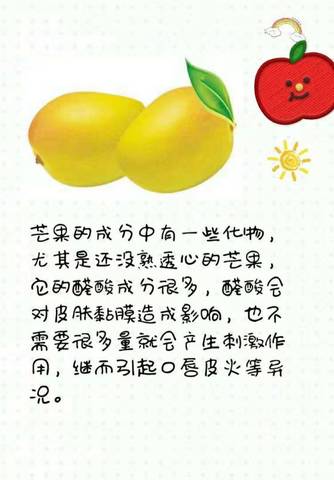 芒果的成分中有一些化物，
尤其是还没熟透心的芒果，
它的醛酸成分很多，醛酸会
对皮肤黏膜造成影响，也不
需要很多量就会产生刺激作
用，继而引起口唇皮火等异
况。